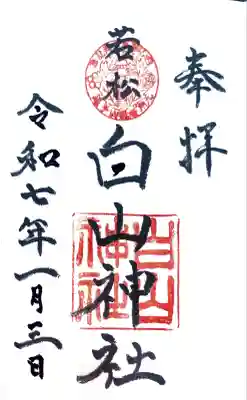 奉拝
若松
白山神社
令和七年一月三日
白山神社